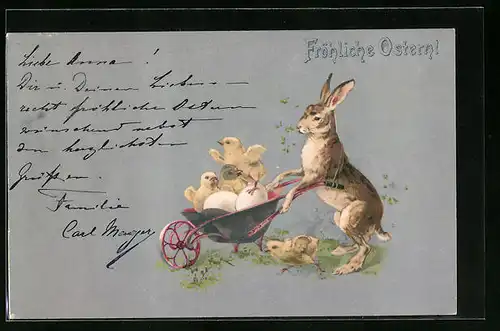 Fröhliche Ostern!
Liebe Anna!
Dir u. Deinen Lieben
recht fröhliche Ostern
wünschend nebst
den herzlichsten
Grüßen.
Familie
Carl Mayer